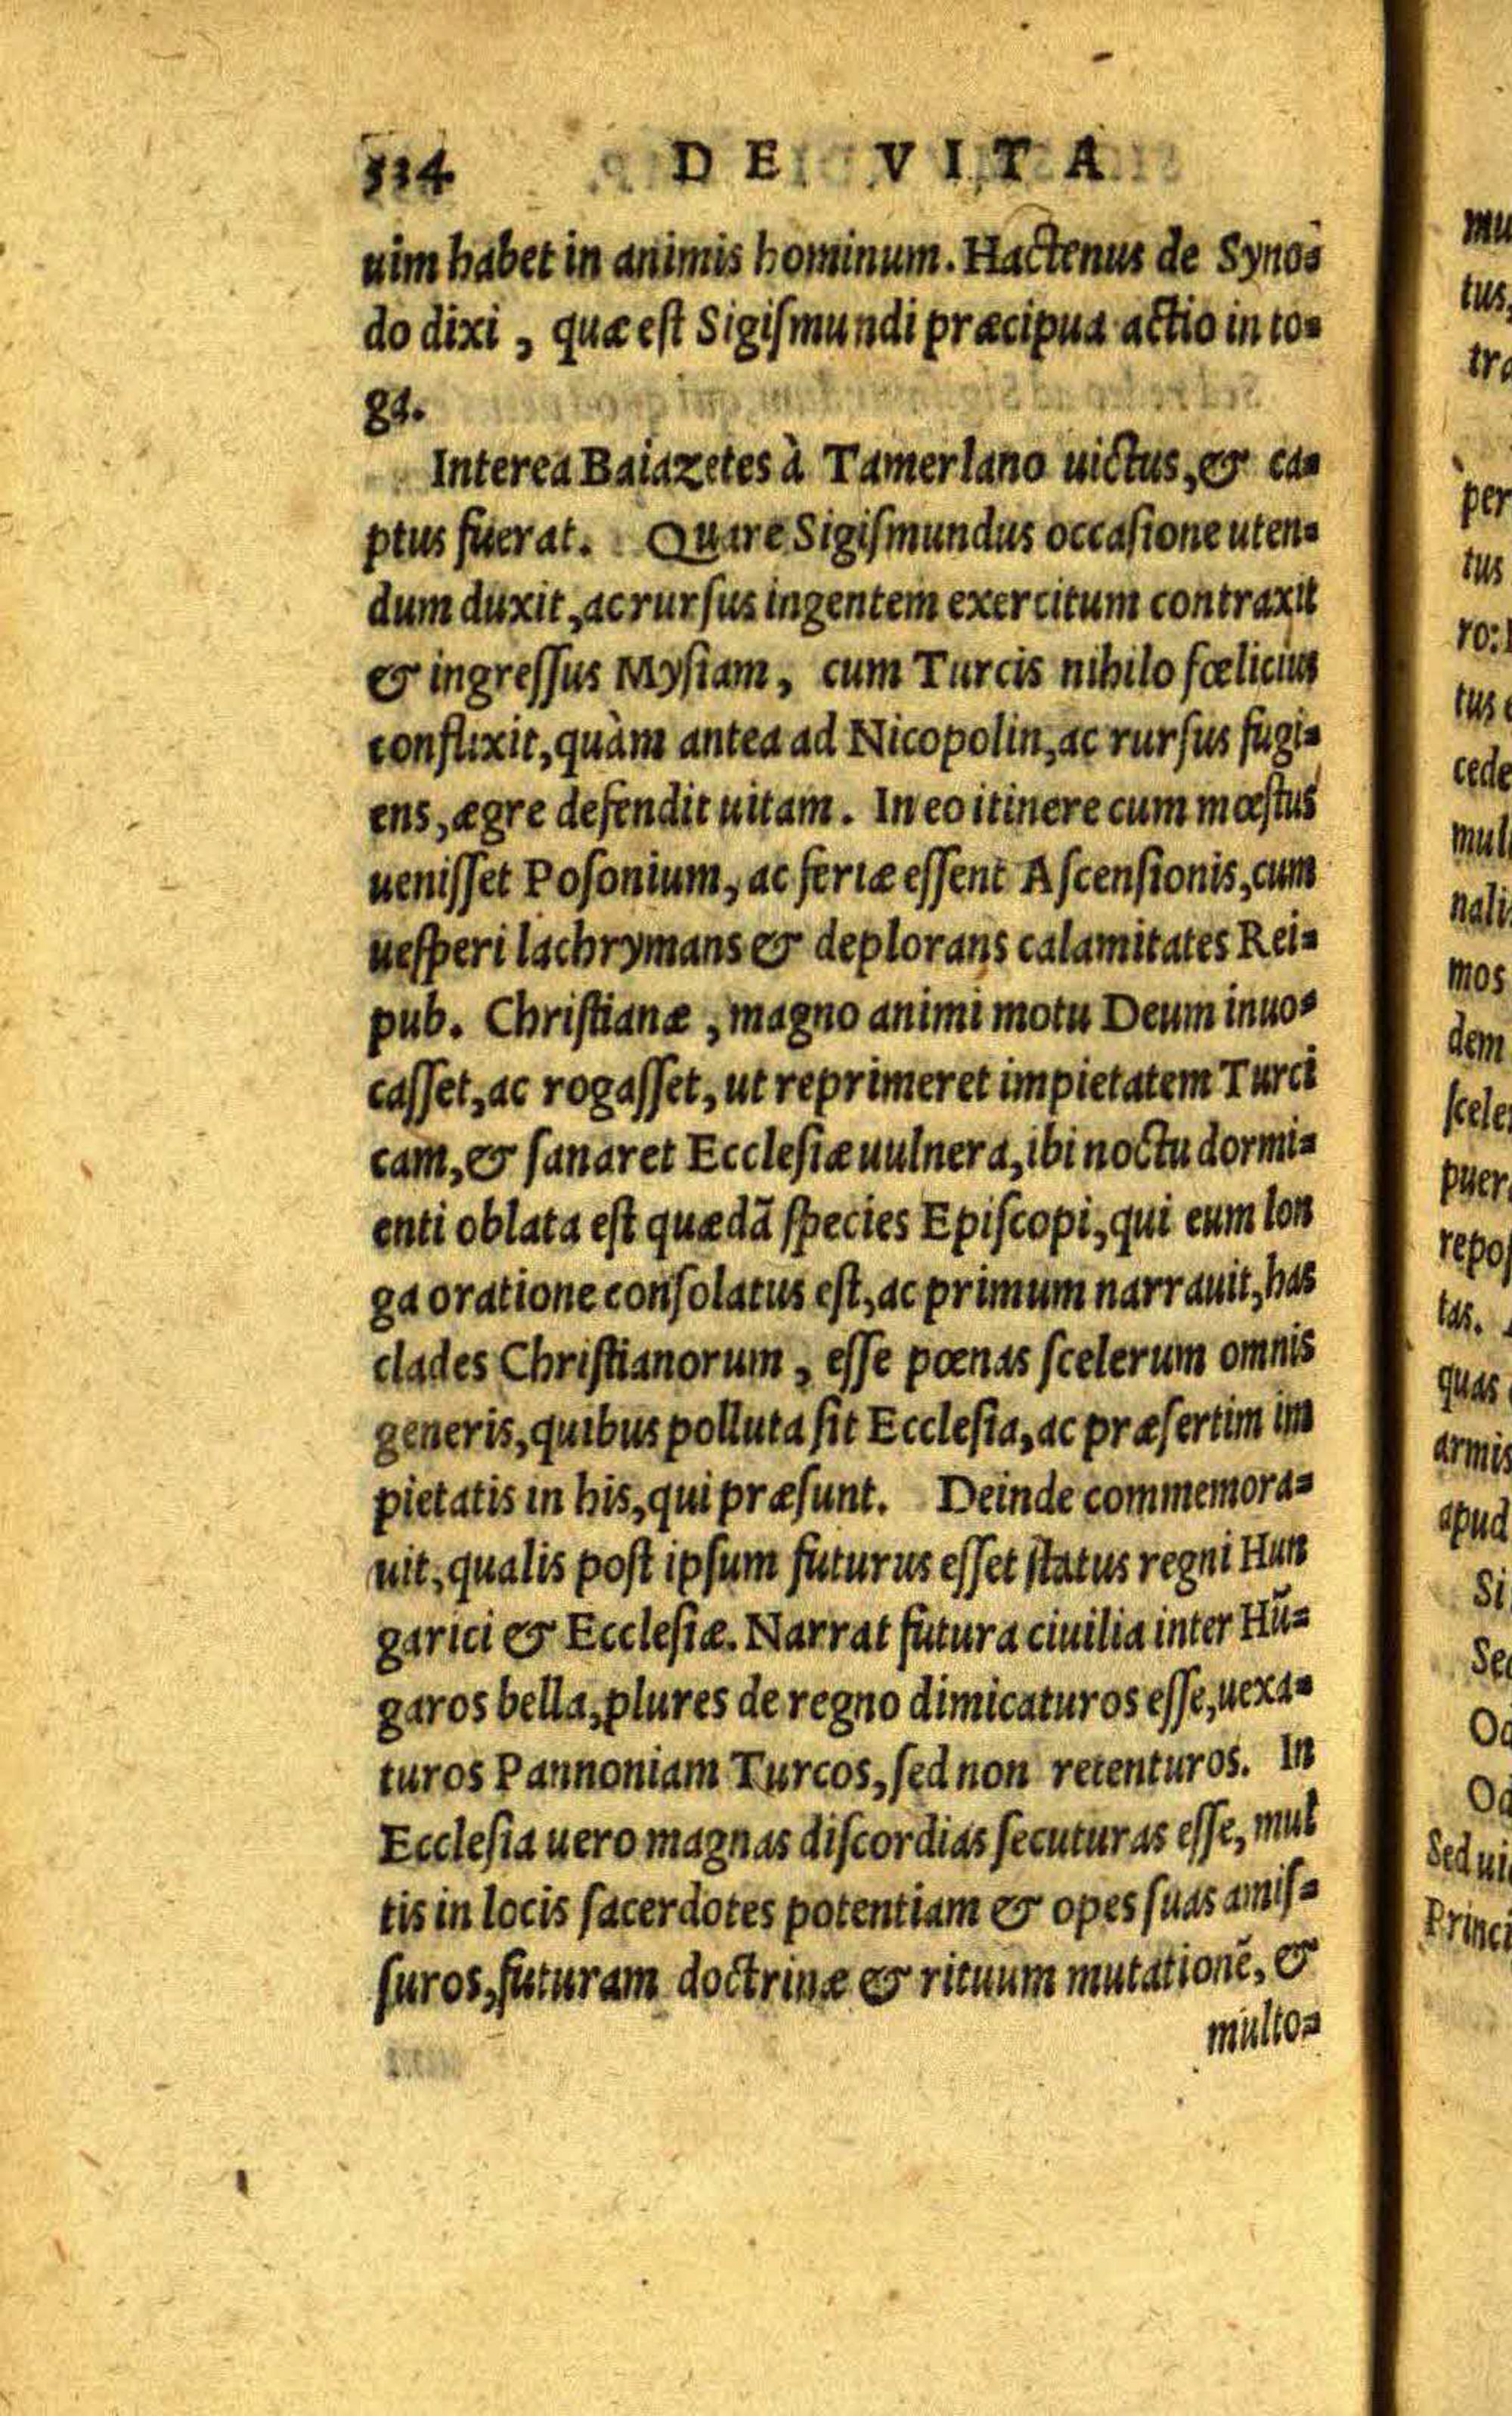 534 DE VITA
uim habet in animis hominum. Hactenus de Syno⸗
do dixi, quæ est Sigiſmundi præcipua actio in to⸗
ga.
Interea Baiazetes à Tamerlano uictus, & ca⸗
ptus fuerat. Quare Sigiſmundus occaſione uten⸗
dum duxit, ac rurſus ingentem exercitum contraxit
& ingreſſus Myſiam, cum Turcis nihilo fœlicius
conflixit, quàm antea ad Nicopolin, ac rurſus fugi⸗
ens, ægre defendit uitam. In eo itinere cum mœſtus
ueniſſet Poſonium, ac feriæ eſſent Aſcenſionis, cum
ueſperi lachrymans & deplorans calamitates Rei⸗
pub. Chriſtianæ, magno animi motu Deum inuo⸗
caſſet, ac rogaſſet, ut reprimeret impietatem Turci
cam, & ſanaret Eccleſiæ uulnera, ibi noctu dormi⸗
enti oblata eſt quædã ſpecies Epiſcopi, qui eum lon
ga oratione conſolatus eſt, ac primum narrauit, has
clades Chriſtianorum, eſſe pœnas ſcelerum omnis
generis, quibus polluta ſit Eccleſia, ac præſertim im
pietatis in his, qui præſunt. Deinde commemora⸗
uit, qualis poſt ipſum futurus eſſet ſtatus regni Hun
garici & Eccleſiæ. Narrat futura ciuilia inter Hũ⸗
garos bella, plures de regno dimicaturos eſſe, uexa⸗
turos Pannoniam Turcos, ſed non retenturos. In
Eccleſia uero magnas diſcordias ſecuturas eſſe, mul
tis in locis ſacerdotes potentiam & opes ſuas amiſ⸗
ſuros, futuram doctrinæ & rituum mutationẽ, &
multo⸗